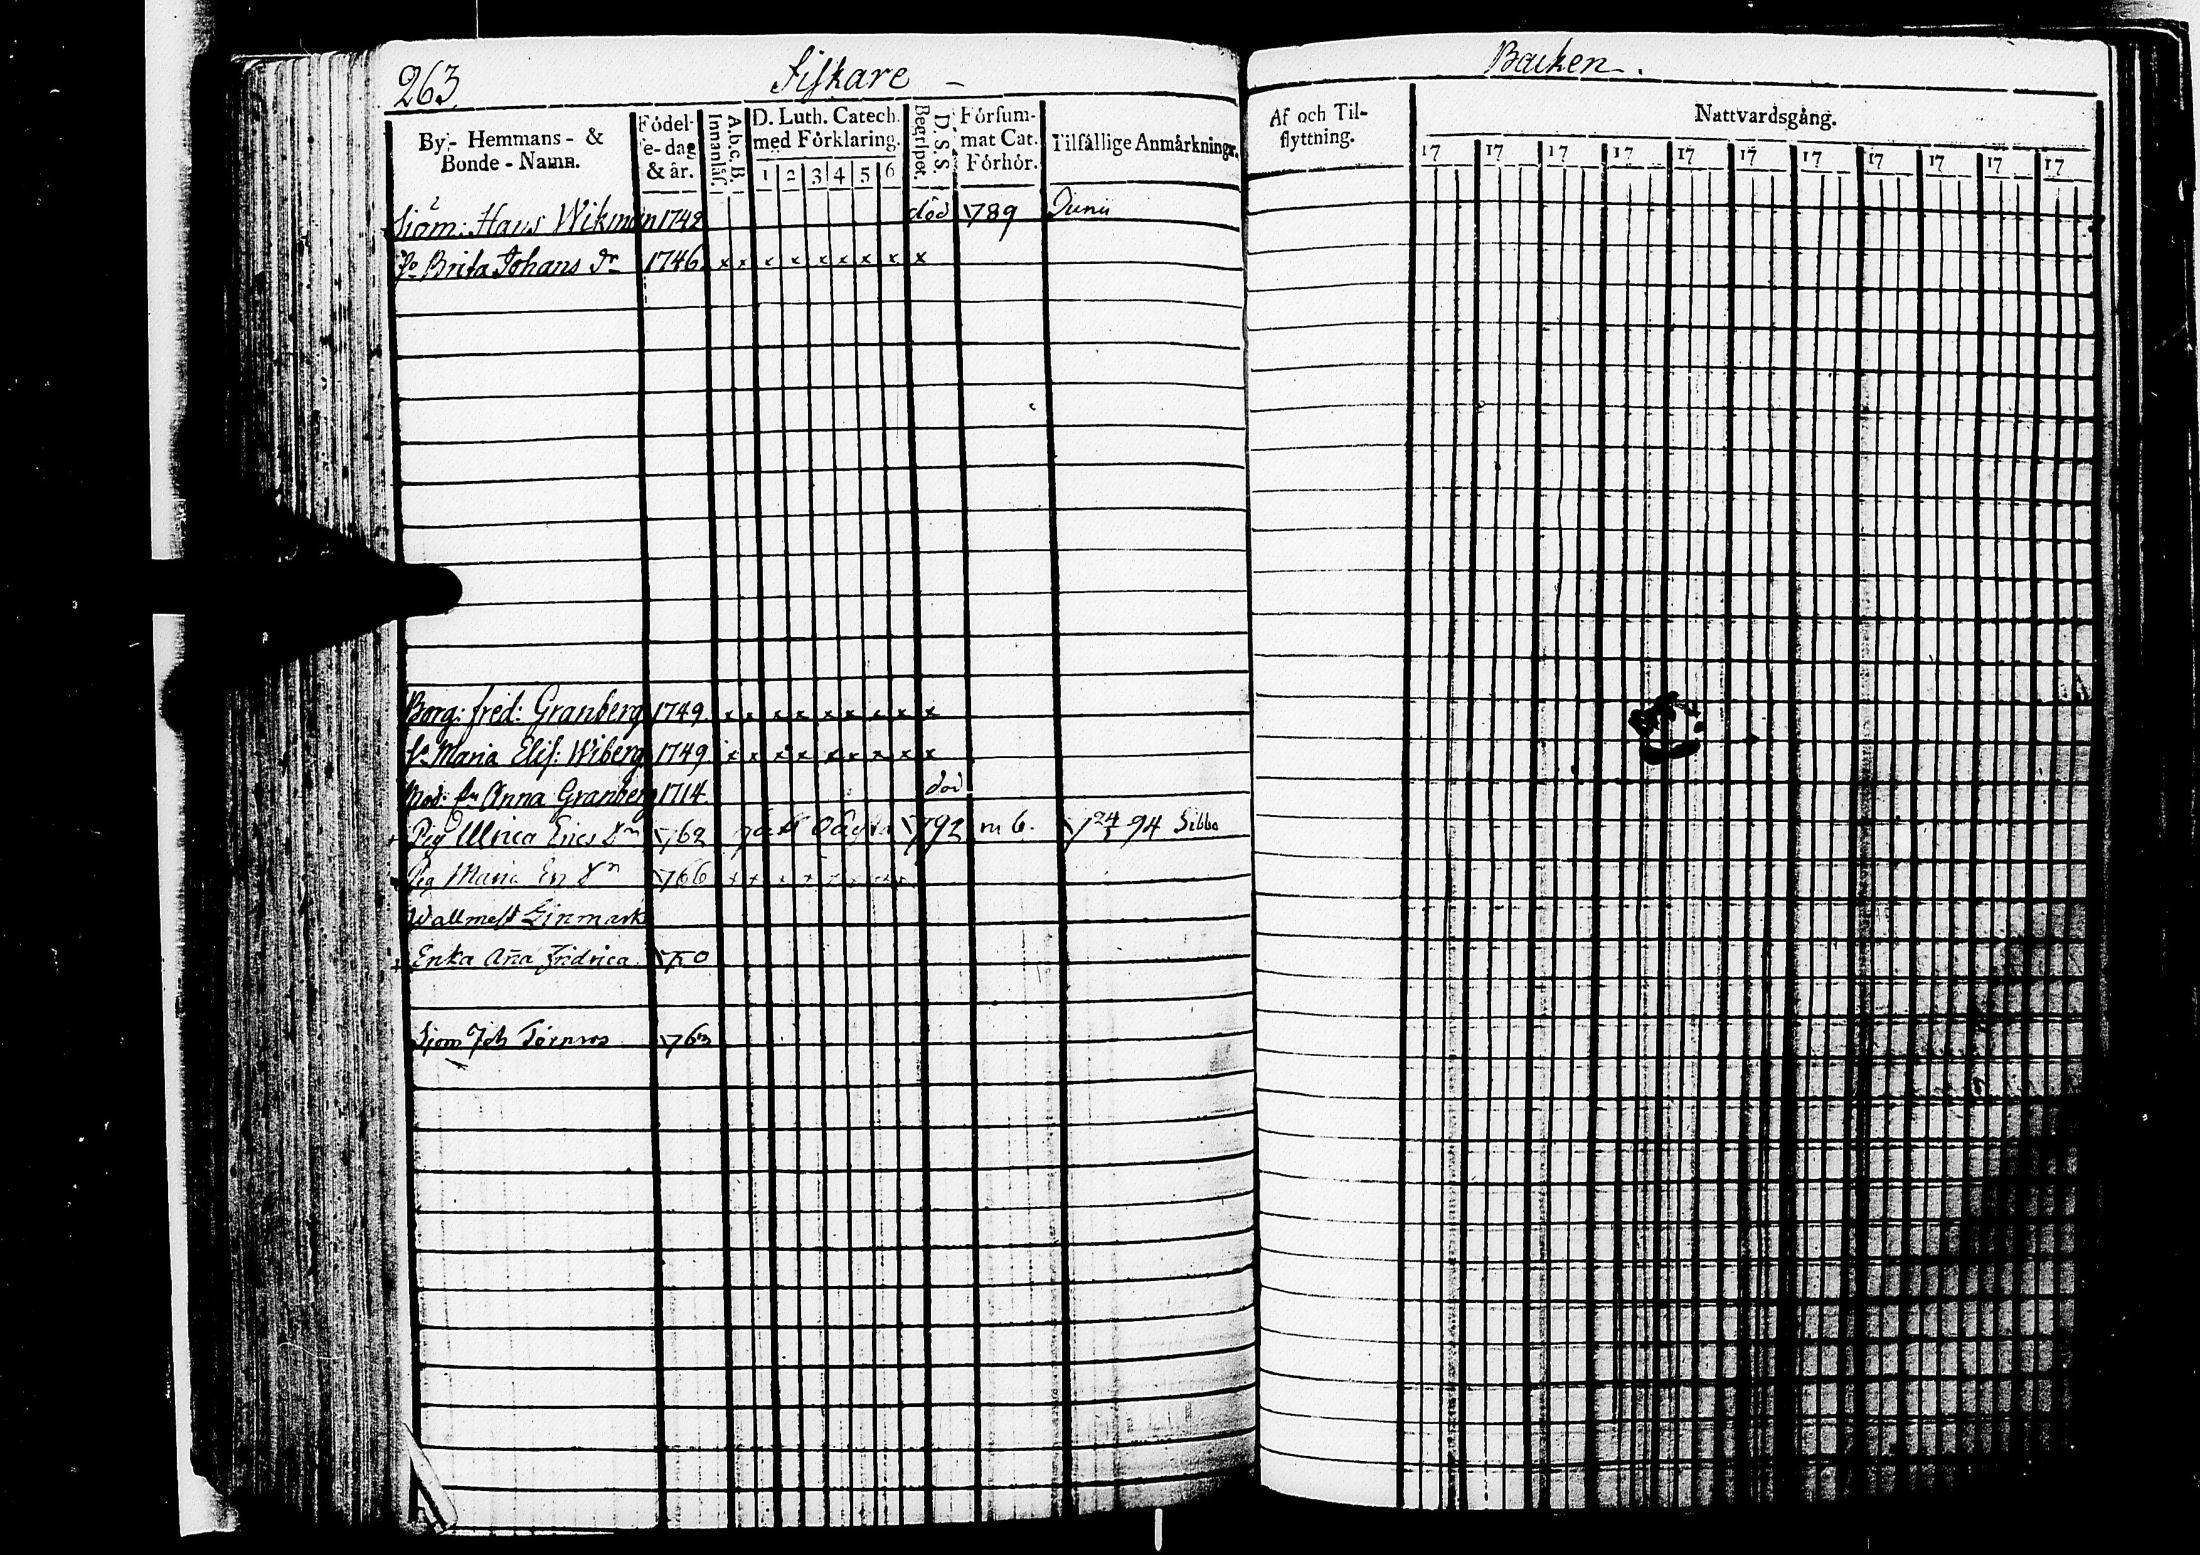 263 Fiskare –
By,- Hemmans- & Bonde-Namn. Födel-e-dag & år. A.b.c.B. Innanläs. D. Luth. Catech. med Förklaring. 1 2 3 4 5 6 D. S. S. Begripet. Försum-mat Cat. Förhör. Tilfällige Anmärkningr.
2
Sjöm: Hans Wikman 1742 död 1789 Junii
ho Brita Johans dr 1746 x x x x x x x x x
Borg: fred: Granberg 1749 x x x x x x x x x
ho Maria Elis: Wiberg 1749 x x x x x x x x x
Mod: fru Anna Granberg 1714 död
Pig Ulrica Erics dr 1762 792 m 6. 94 Sibbo
Pig Maria Er dr 1766 x x x x x x x x
Wallmest Linmark
Enka Aña Fredrica
Sjöm Joh 176
Backen.
Af och Til-flyttning. Nattvardsgång.
17 17 17 17 17 17 17 17 17 17 17